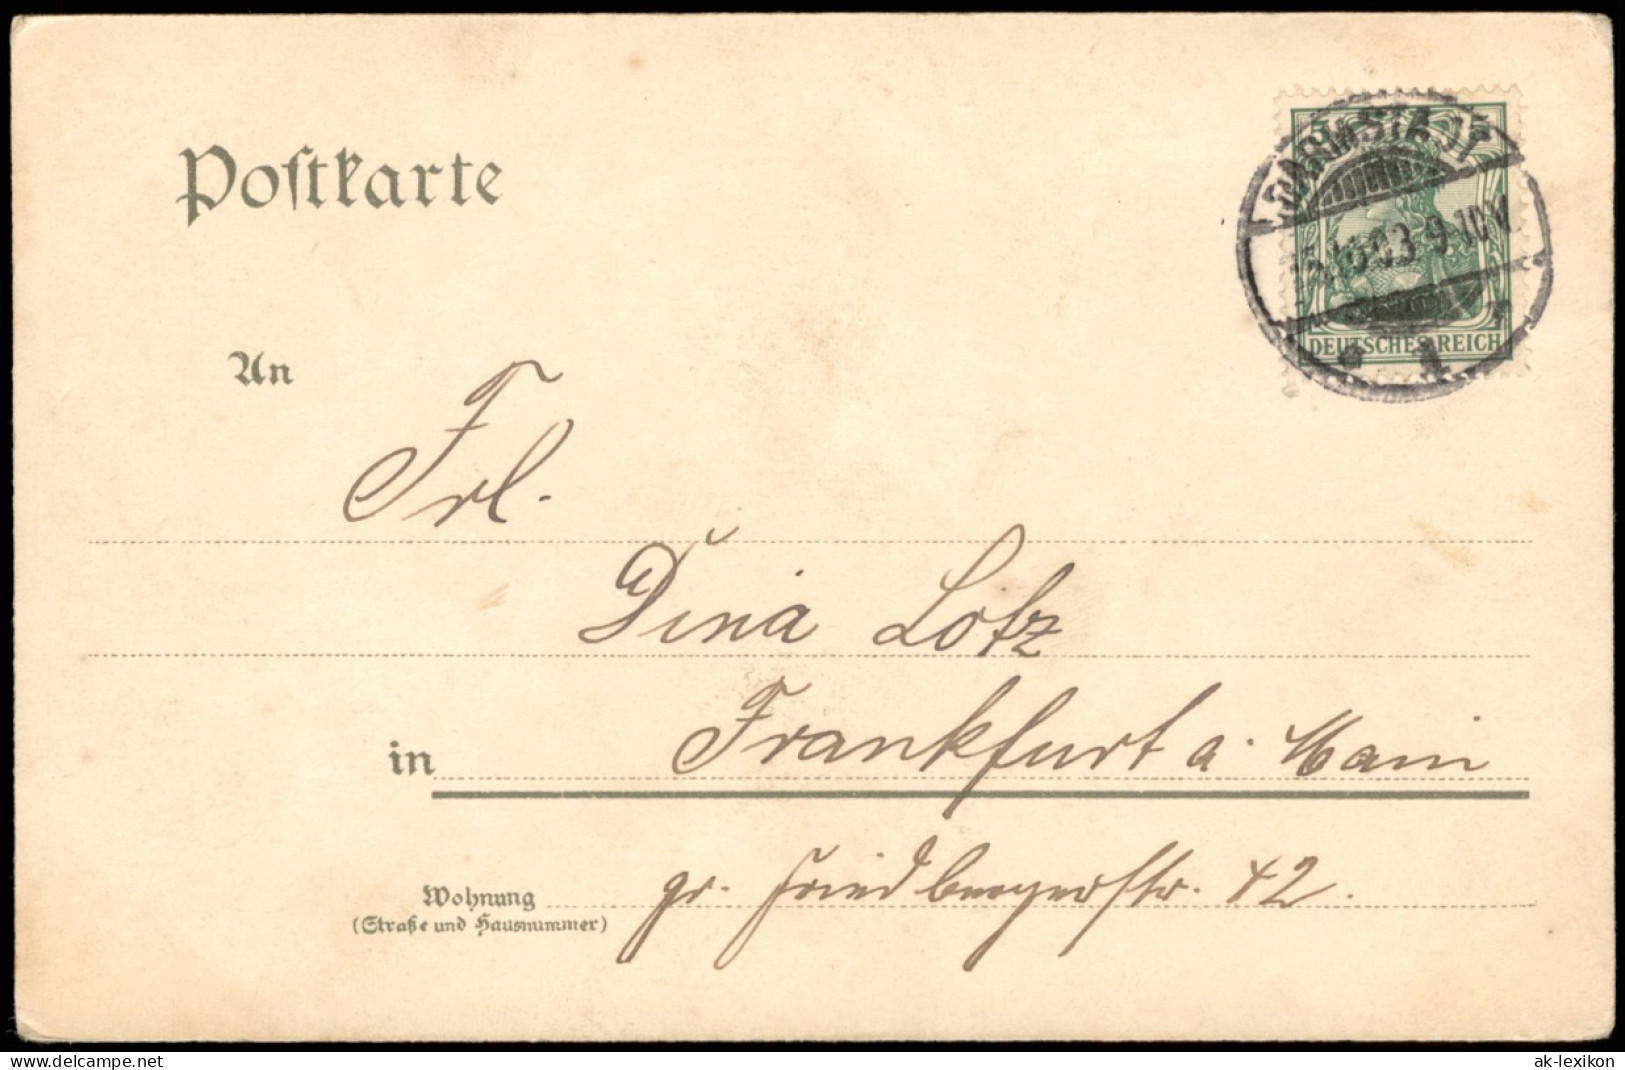 Postkarte
5 5
DARMSTADT
15.10.03 9-10V
DEUTSCHES REICH
* 1 *
An
Frl.
Dina Lotz
in Frankfurt a. Main
Wohnung gr. Friedbergerstr. 42.
(Straße und Hausnummer)
www.delcampe.net
ak-lexikon